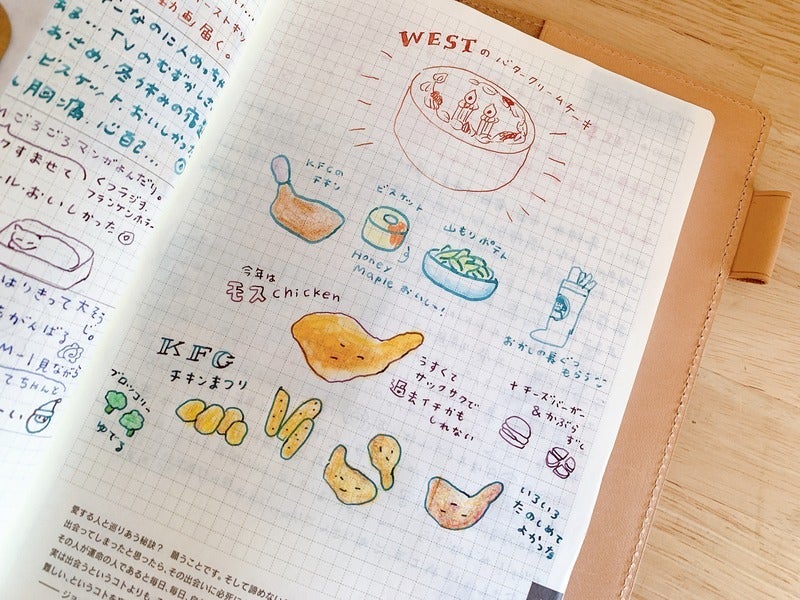 ーストキッ
動画届く。
こなのに人めっちゃ
ある…TVのむずかしさ
おさめ、冬休みの宿
ビスケットおいしかった
胸痛、心自己…
ごろごろマンガよんだり。
クすませて
くつラジオ
フランケンホラー
ル・おいしかった
はりきって大そう
じ。
がんばる
M-1見ながら
てちゃんと
WESTのバタークリームケーキ
KFCの
チキン
ビスケット
Honey
Maple おいし〜!
山もりポテん
おかしの長ぐつ
もらうこ
今年は
モスchicken
うすくて
サックサクで
過去イチかも
しれない
KFC
チキンまつり
ブロッコリー
ゆでる
+チーズバーガー
&かぶら
ずし
いろいろ
たのしめて
よかった
愛する人と巡りあう秘訣? 願うことです。そして諦めない
出会ってしまったと思ったら、その出会いに必死に
その人が運命の人であると毎日、毎日、
実は出会うというコトよりも、
難しい、というコトを
――ジョー